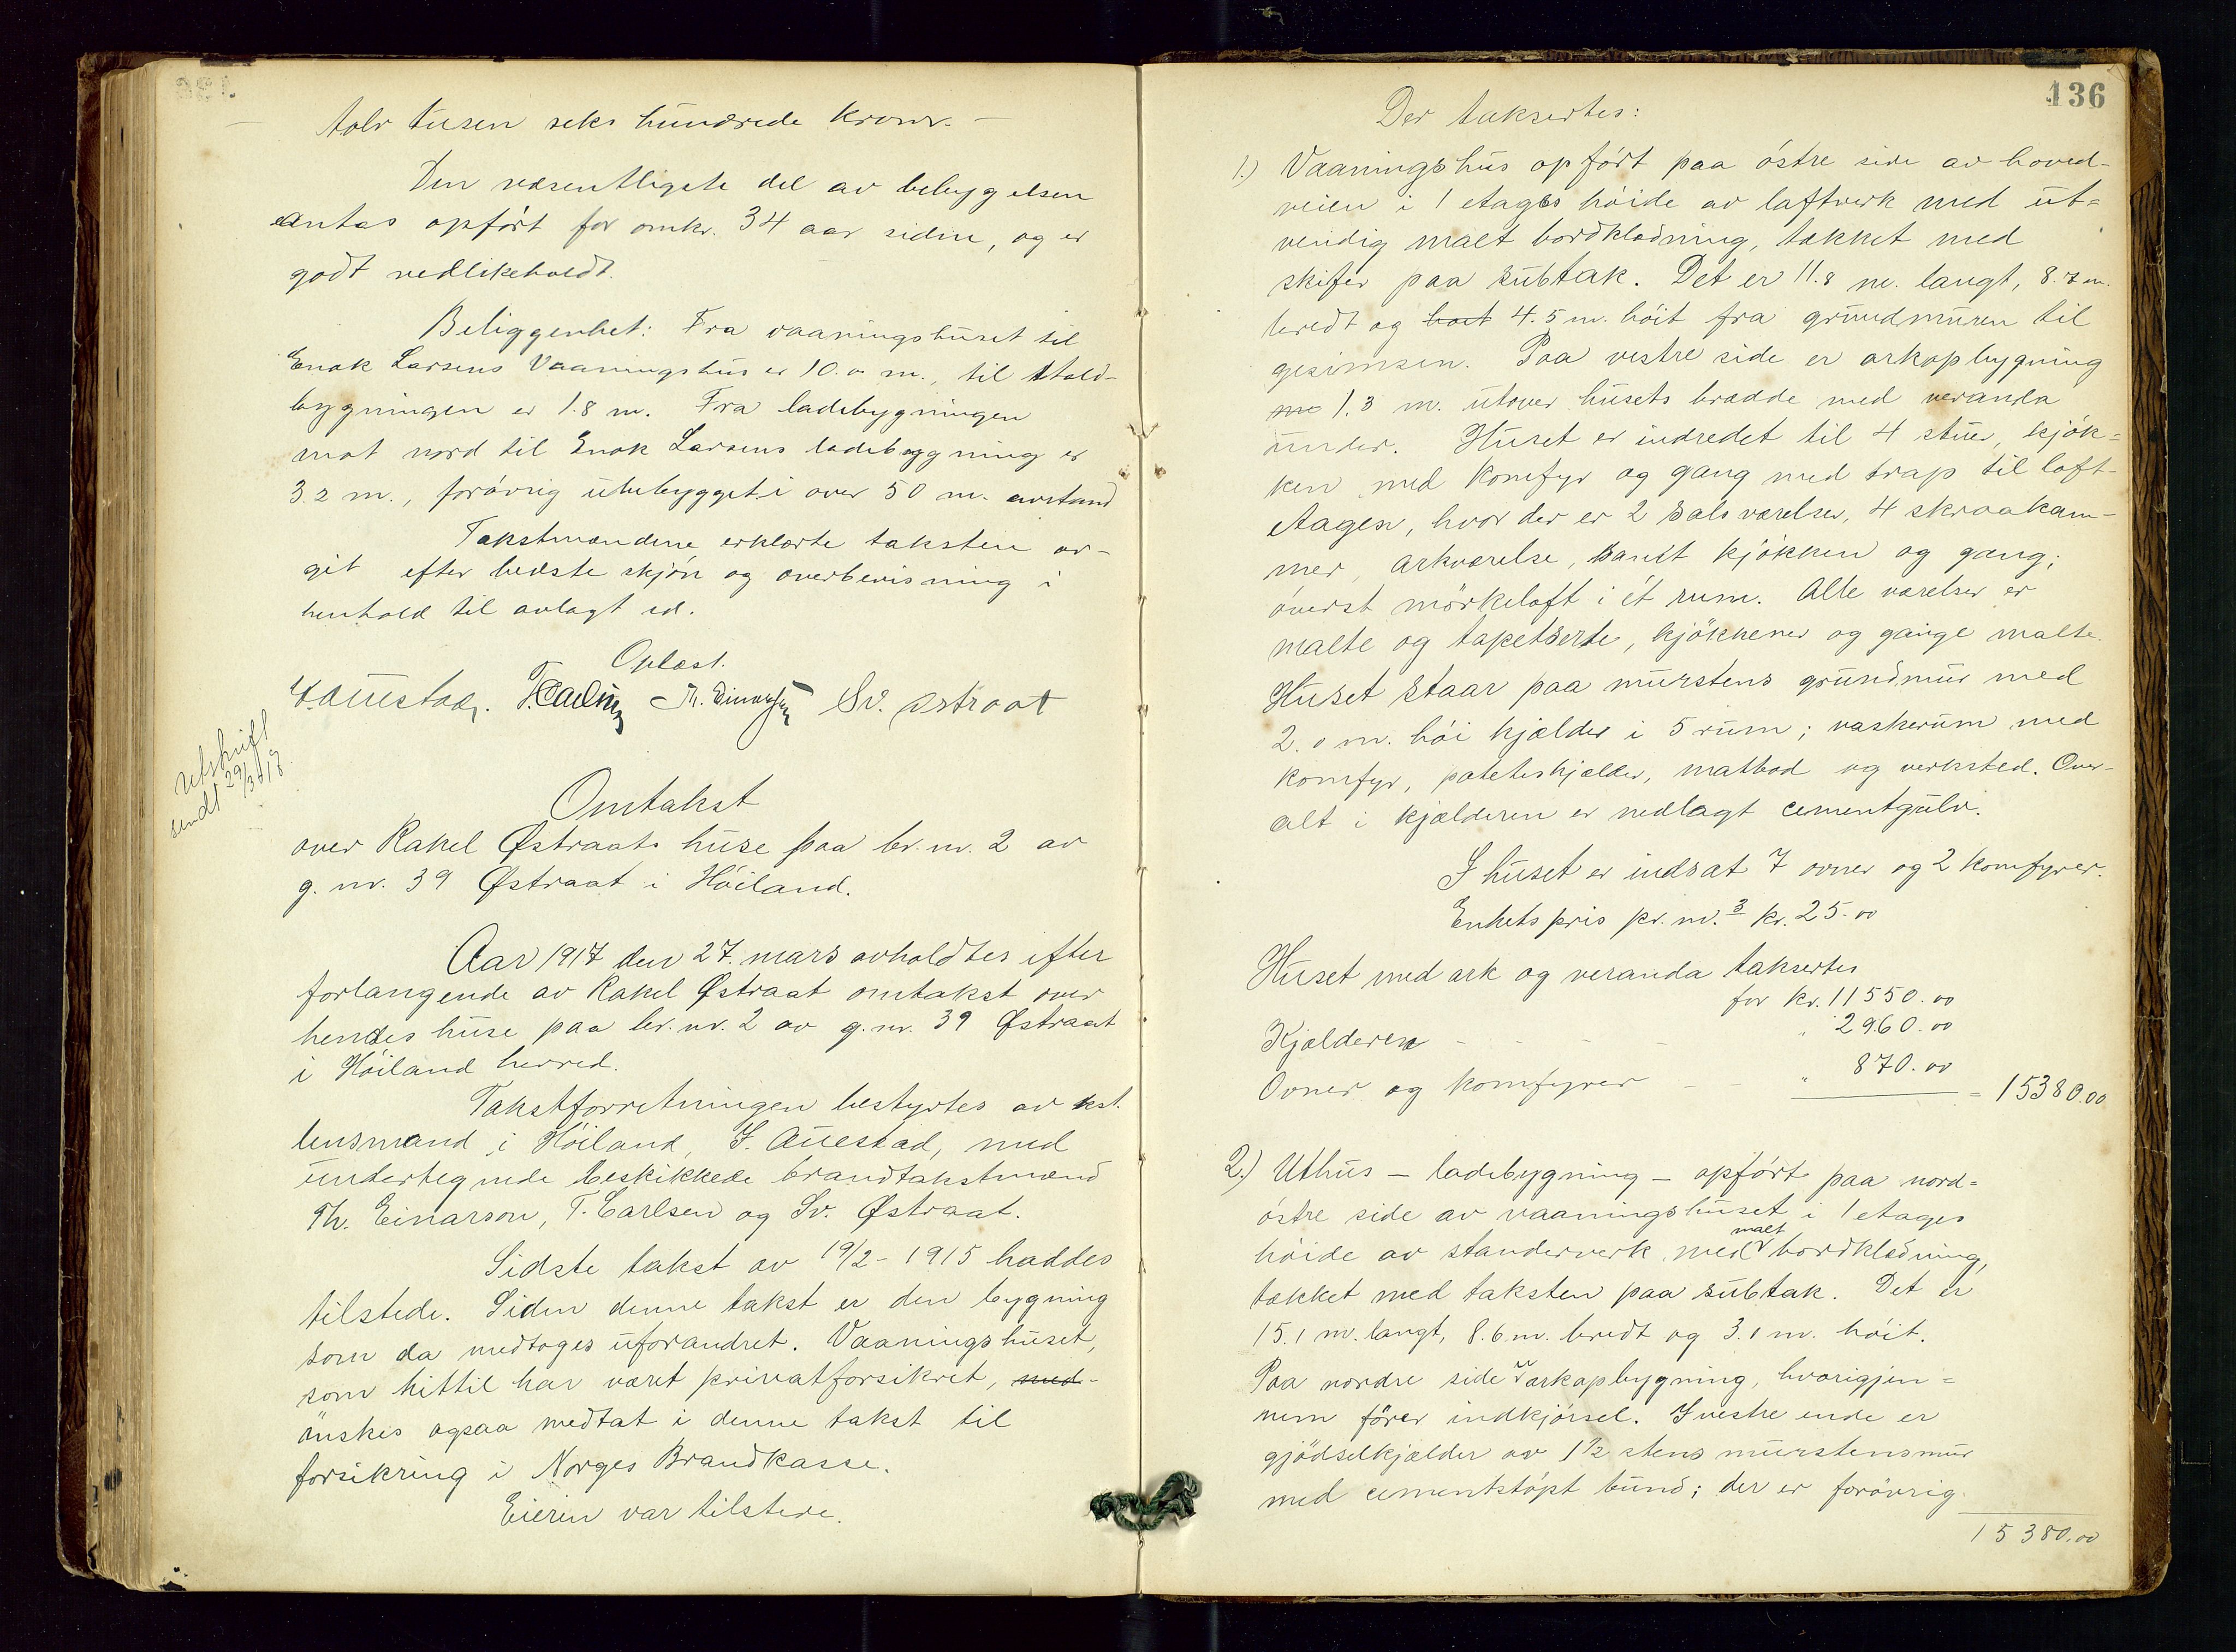 tolv tusen seks hundrede kroner. —
Den væsentligste del av bebyggelsen
antas opført for omkr. 34 aar siden, og er
godt vedlikeholdt.
Beliggenhet: Fra vaaningshuset til
Enok Larsens Vaaningshus er 10.0 m., til stald-
bygningen er 1.8 m. Fra ladebygningen
mot nord til Enok Larsens ladebygning er
3.2 m., forøvrig utbebygget i over 50 m. avstand
Takstmændene erklærte taksten av-
git efter bedste skjøn og overbevisning i
henhold til avlagt ed.
Oplæst.
Auestad. T. Carlsen Th. Einarsen Sv. Østraat
Utskrift
sendt 29/3 17
Omtakst
over Rakel Østraats huse paa br. nr. 2 av
g. nr. 39 Østraat i Høiland.
Aar 1917 den 27. mars avholdtes efter
forlangende av Rakel Østraat omtakst over
hendes huse paa br. nr. 2 av g. nr. 39 Østraat
i Høiland herred.
Takstforretningen bestyrtes av kst.
lensmand i Høiland, J. Auestad, med
undertegnede beskikkede brandtakstmænd
Th. Einarson, T. Carlsen og Sv. Østraat.
Sidste takst av 19/2 - 1915 haddes
tilstede. Siden denne takst er den bygning
som da medtoges uforandret. Vaaningshuset,
som hittil har været privatforsikret, med-
ønskes ogsaa medtat i denne takst til
forsikring i Norges Brandkasse.
Eierin var tilstede.
136
Der taksertes:
1.) Vaaningshus opført paa østre side av hoved-
veien i 1 etages høide av laftverk med ut=
vendig malt bordklædning, tækket med
skifer paa sutak. Det er 11.8 m. langt, 8.7 m.
bredt og høit 4.5 m. høit fra grundmuren til
gesimsen. Paa vestre side er arkopbygning
1.3 m. utover husets brædde med veranda
under. Huset er indredet til 4 stuer, kjøk=
ken med komfyr og gang med trap til loft-
etagen, hvor der er 2 salsværelser, 4 skraakam-
mer, arkværelse, samt kjøkken og gang;
øverst mørkeloft i ét rum. Alle værelser er
malte og tapetserte, kjøkkener og gange malte.
Huset staar paa murstens grundmur med
2.0 m. høi kjælder i 5 rum; vaskerum med
komfyr, potetkjælder, matbod og verksted. Over-
alt i kjælderen er nedlagt cementgulv.
I huset er indsat 7 ovner og 2 komfyrer.
Enhetspris pr. m.3 kr. 25.00
Huset med ark og veranda taksertes
for kr. 11550.00
Kjælderen - - - - " 2960.00
Ovner og komfyrer - - " 870.00 = 15380.00
2.) Uthus – ladebygning – opført paa nord=
østre side av vaaningshuset i 1 etages
høide av standerverk med malt bordklædning,
tækket med taksten paa sutak. Det er
15.1 m. langt, 8.6 m. bredt og 3.1 m. høit.
Paa nordre side er arkopbygning, hvorigjen=
nem fører indkjørsel. I vestre ende er
gjødselkjælder av 1 1/2 stens murstensmur
med cementstøpt bund; der er forøvrig
15380.00